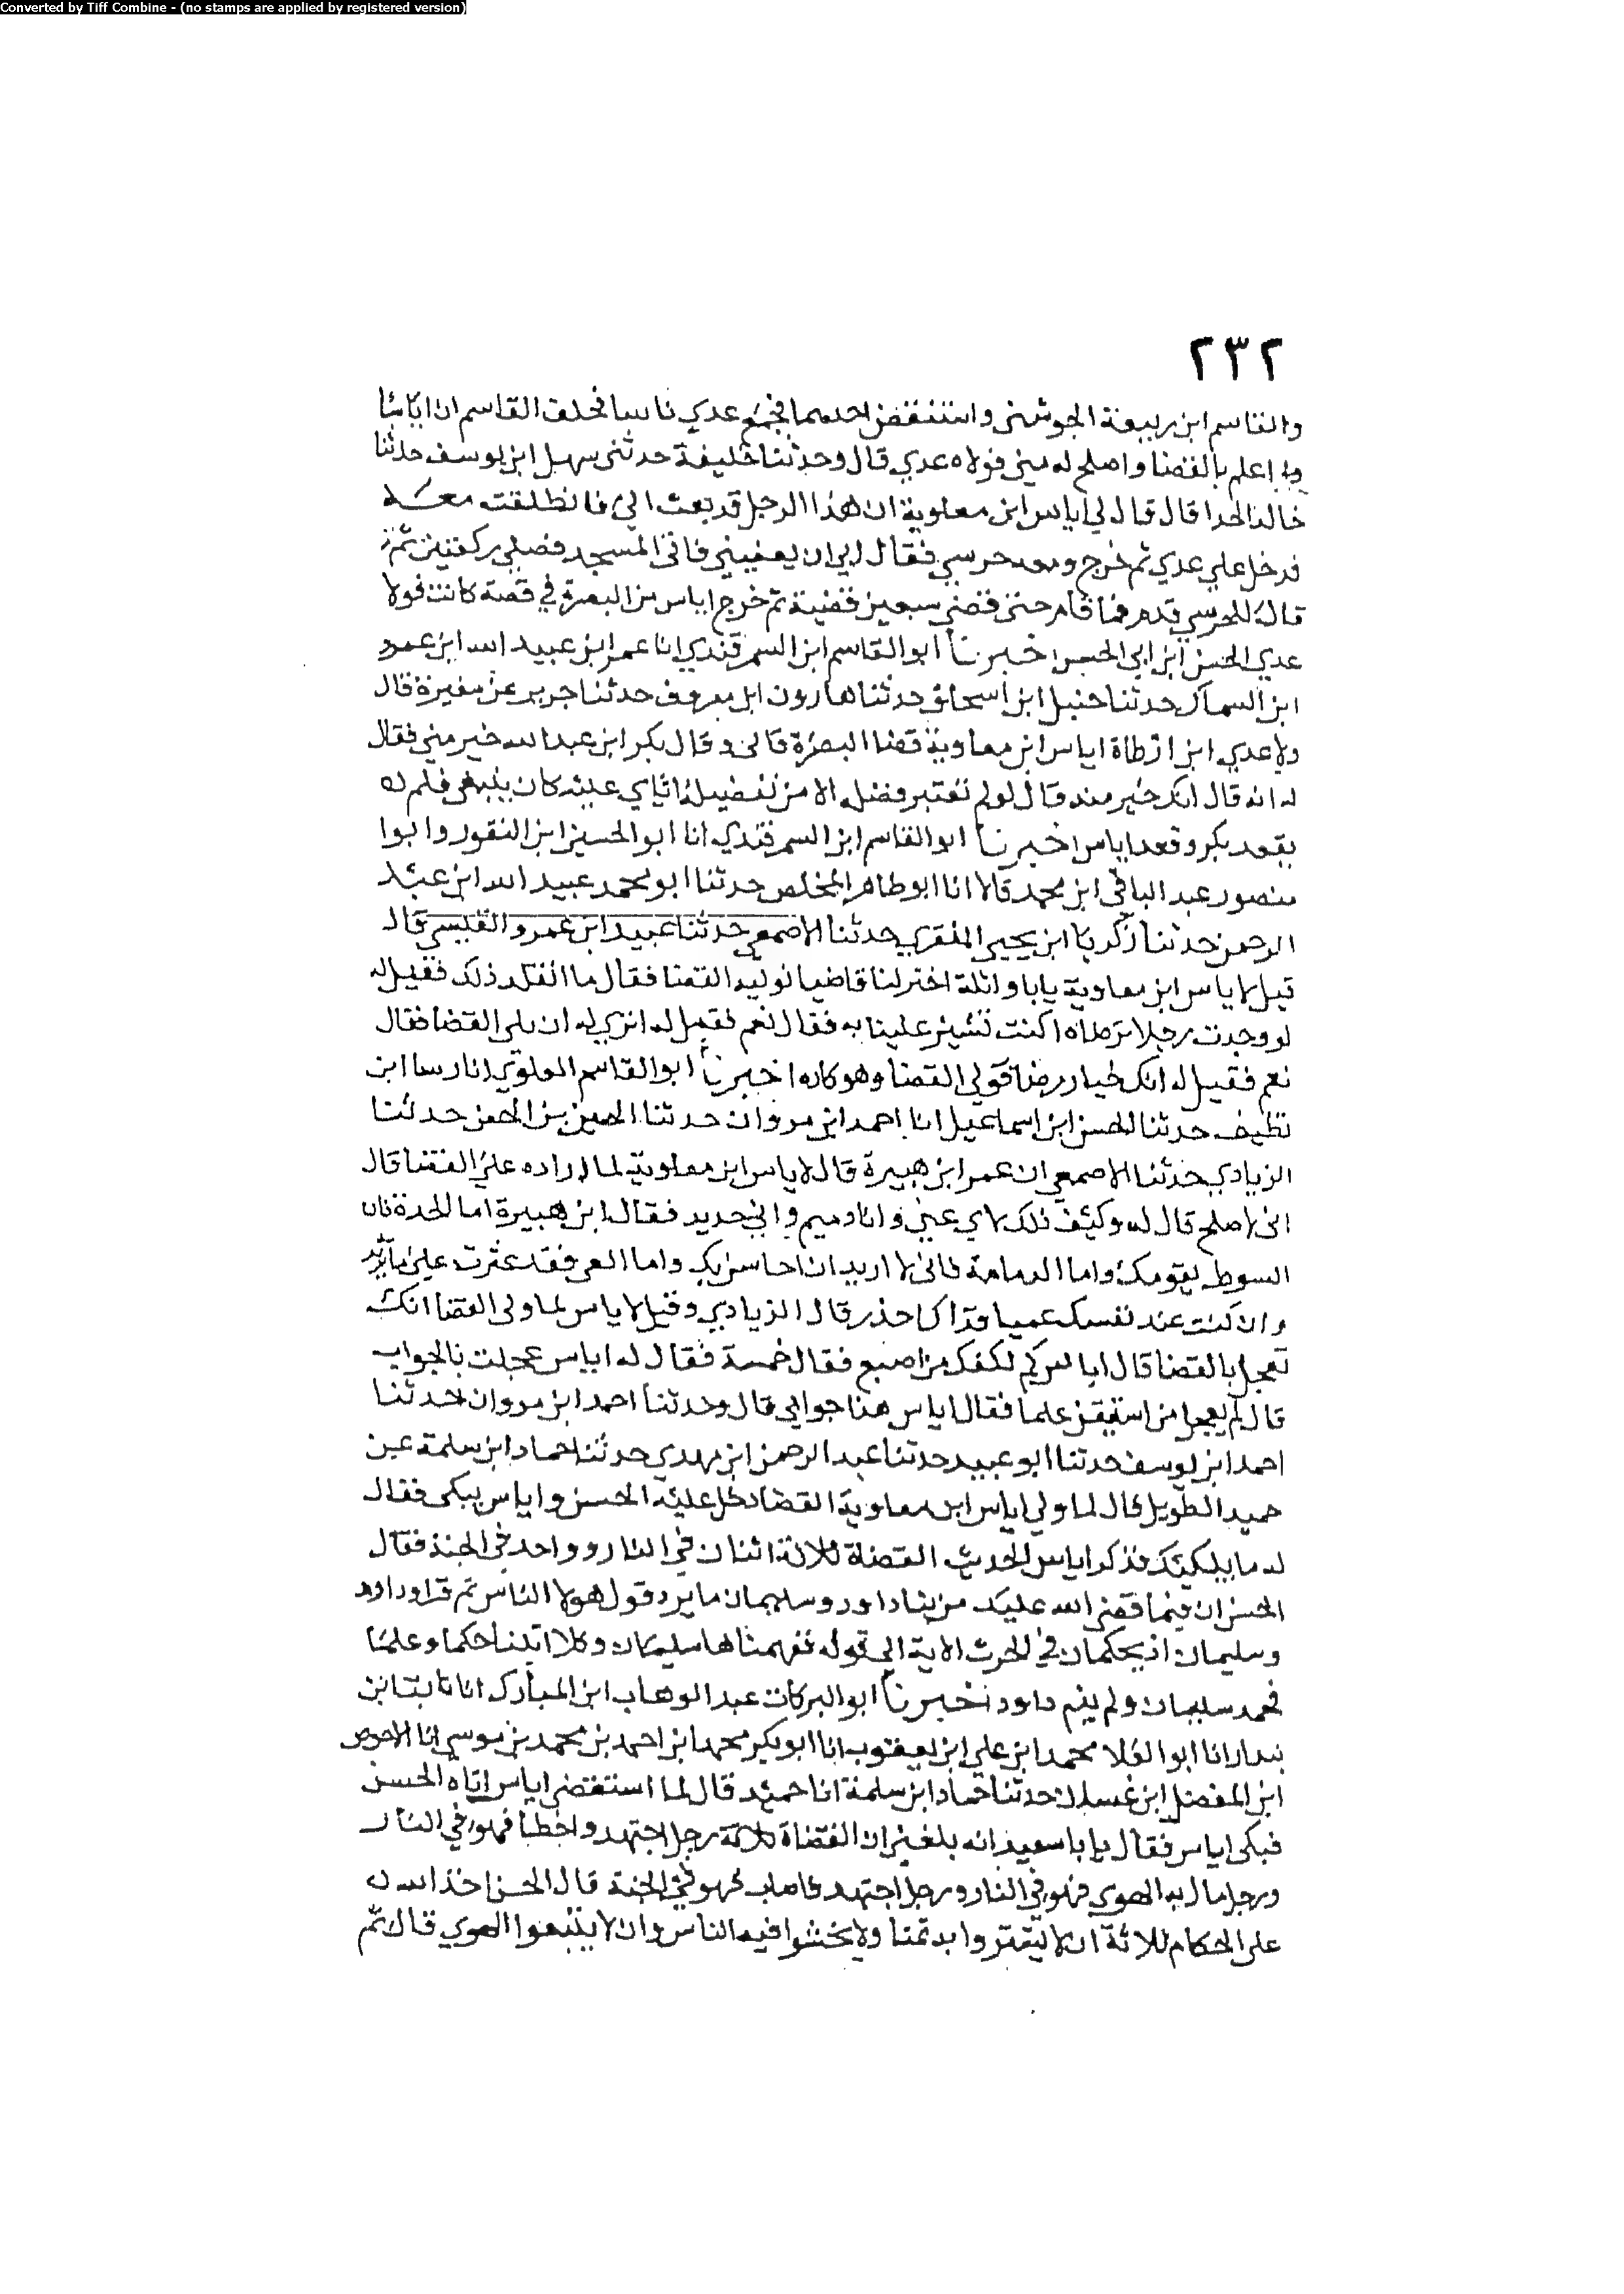 Converted by Tiff Combine - (no stamps are applied by registered version)
٢٣٢
والقاسم ابن ربيعة الجوشني واستقض احدهما فجمع عدي ناسا فحلف القاسم ان اياسا
اعلم بالقضا واصلح له مني فولاه عدي قال وحدثنا خليفة حدثني سهل ابن يوسف حدثنا
خالد الحدا قال قال لي اياس ابن معاوية ان هذا الرجل قد بعث الي فانطلقت معه
فدخل علي عدي ثم خرج ومعه حرسي فقال ابي ان يعفيني فاتى المسجد فصلي ركعتين ثم
قال للحرسي قدم فما قام حتى قضى سبعين قضية ثم خرج اياس من البصرة في قصة كانت فولا
عدي الحسن ابن ابي الحسن اخبرنا ابو القاسم ابن السمرقندي انا عمر ابن عبيد الله ابن عمر
ابن السماك حدثنا حنبل ابن اسحاق حدثنا هارون ابن معروف حدثنا جرير عن مغيرة قال
ولا عدي ابن ارطاة اياس ابن معاوية قضا البصرة فابى وقال بكر ابن عبد الله خير مني فقال
له انه قال انك خير منه قال لو لم تعتبر فضله الا من تفضيله اياي عليه كان ينبغي فلم
يقعد بكر وقعد اياس اخبرنا ابو القاسم ابن السمرقندي انا ابو الحسين ابن النقور وابوا
منصور عبد الباقي ابن محمد قالا انا ابو طاهر المخلص حدثنا ابو محمد عبيد الله ابن عبد
الرحمن حدثنا زكريا ابن يحيى المنقري حدثنا الاصمعي حدثنا عبيد ابن عمرو القيسي قال
قيل لاياس ابن معاوية يابا واثلة اختر لنا قاضيا نوليه القضا فقال ما اتقلد ذلك فقيل له
لو وجدت رجلا ترضاه اكنت تشير علينا به فقال نعم فقيل له اترى له ان يلي القضا فقال
نعم فقيل له انك خيار رضا فولي القضا وهو كاره اخبرنا ابو القاسم العلوي انا رسا ابن
نظيف حدثنا الحسن ابن اسماعيل انا احمد ابن مروان حدثنا الحسين بن الحسن حدثنا
الزيادي حدثنا الاصمعي ان عمر ابن هبيرة قال لاياس ابن معاوية لما اراده على القضا قال
اني لا اصلح قال له وكيف ذلك لاي عيي وانا دميم واني حديد فقال ابن هبيرة اما الحدة فان
السوط يقومك واما الدمامة فاني لا اريد ان احاسن بك واما العي فقد عثرت على ما تريد
وان كنت عند نفسك عييا فذاك احذر قال الزيادي وقيل لاياس لما ولى القضا انك
تعجل بالقضا قال اياس كم لكفك من اصبع فقال خمسة فقال له اياس عجلت بالجواب
قال لم يعجل من استيقن علما فقال اياس هذا جوابي قال وحدثنا احمد ابن مروان حدثنا
احمد ابن يوسف حدثنا ابو عبيد حدثنا عبد الرحمن ابن مهدي حدثنا حماد ابن سلمة عن
حميد الطويل قال لما ولي اياس ابن معاوية القضا دخل عليه الحسن واياس يبكى فقال
له ما يبكيك فذكر اياس الحديث القضاة ثلاثة اثنان في النار وواحد في الجنة فقال
الحسن ان فيما قضى الله عليك من نبا داود وسليمان ما يرد قول هولا الناس ثم قرا وداود
وسليمان اذ يحكمان في الحرث الاية الى قوله ففهمناها سليمان وكلا اتينا حكما وعلما
فحمد سليمان ولم يذم داود اخبرنا ابو البركات عبد الوهاب ابن المبارك انا ثابت ابن
بندار انا ابو العلا محمد ابن علي ابن يعقوب انا ابو بكر محمد ابن احمد بن محمد بن موسى انا الاحوص
ابن المفضل ابن غسان حدثنا حماد ابن سلمة انا حميد قال لما استقضى اياس اتاه الحسن
فبكى اياس فقال يا با سعيد انه بلغني ان القضاة ثلاثة رجل اجتهد واخطا فهو في النار
ورجل مال به الهوى فهو في النار ورجل اجتهد فاصاب فهو في الجنة قال الحسن اخذ الله
على الحكام ثلاثة ان لا يشتروا به ثمنا ولا يخشوا فيه الناس وان لا يتبعوا الهوى قال ثم